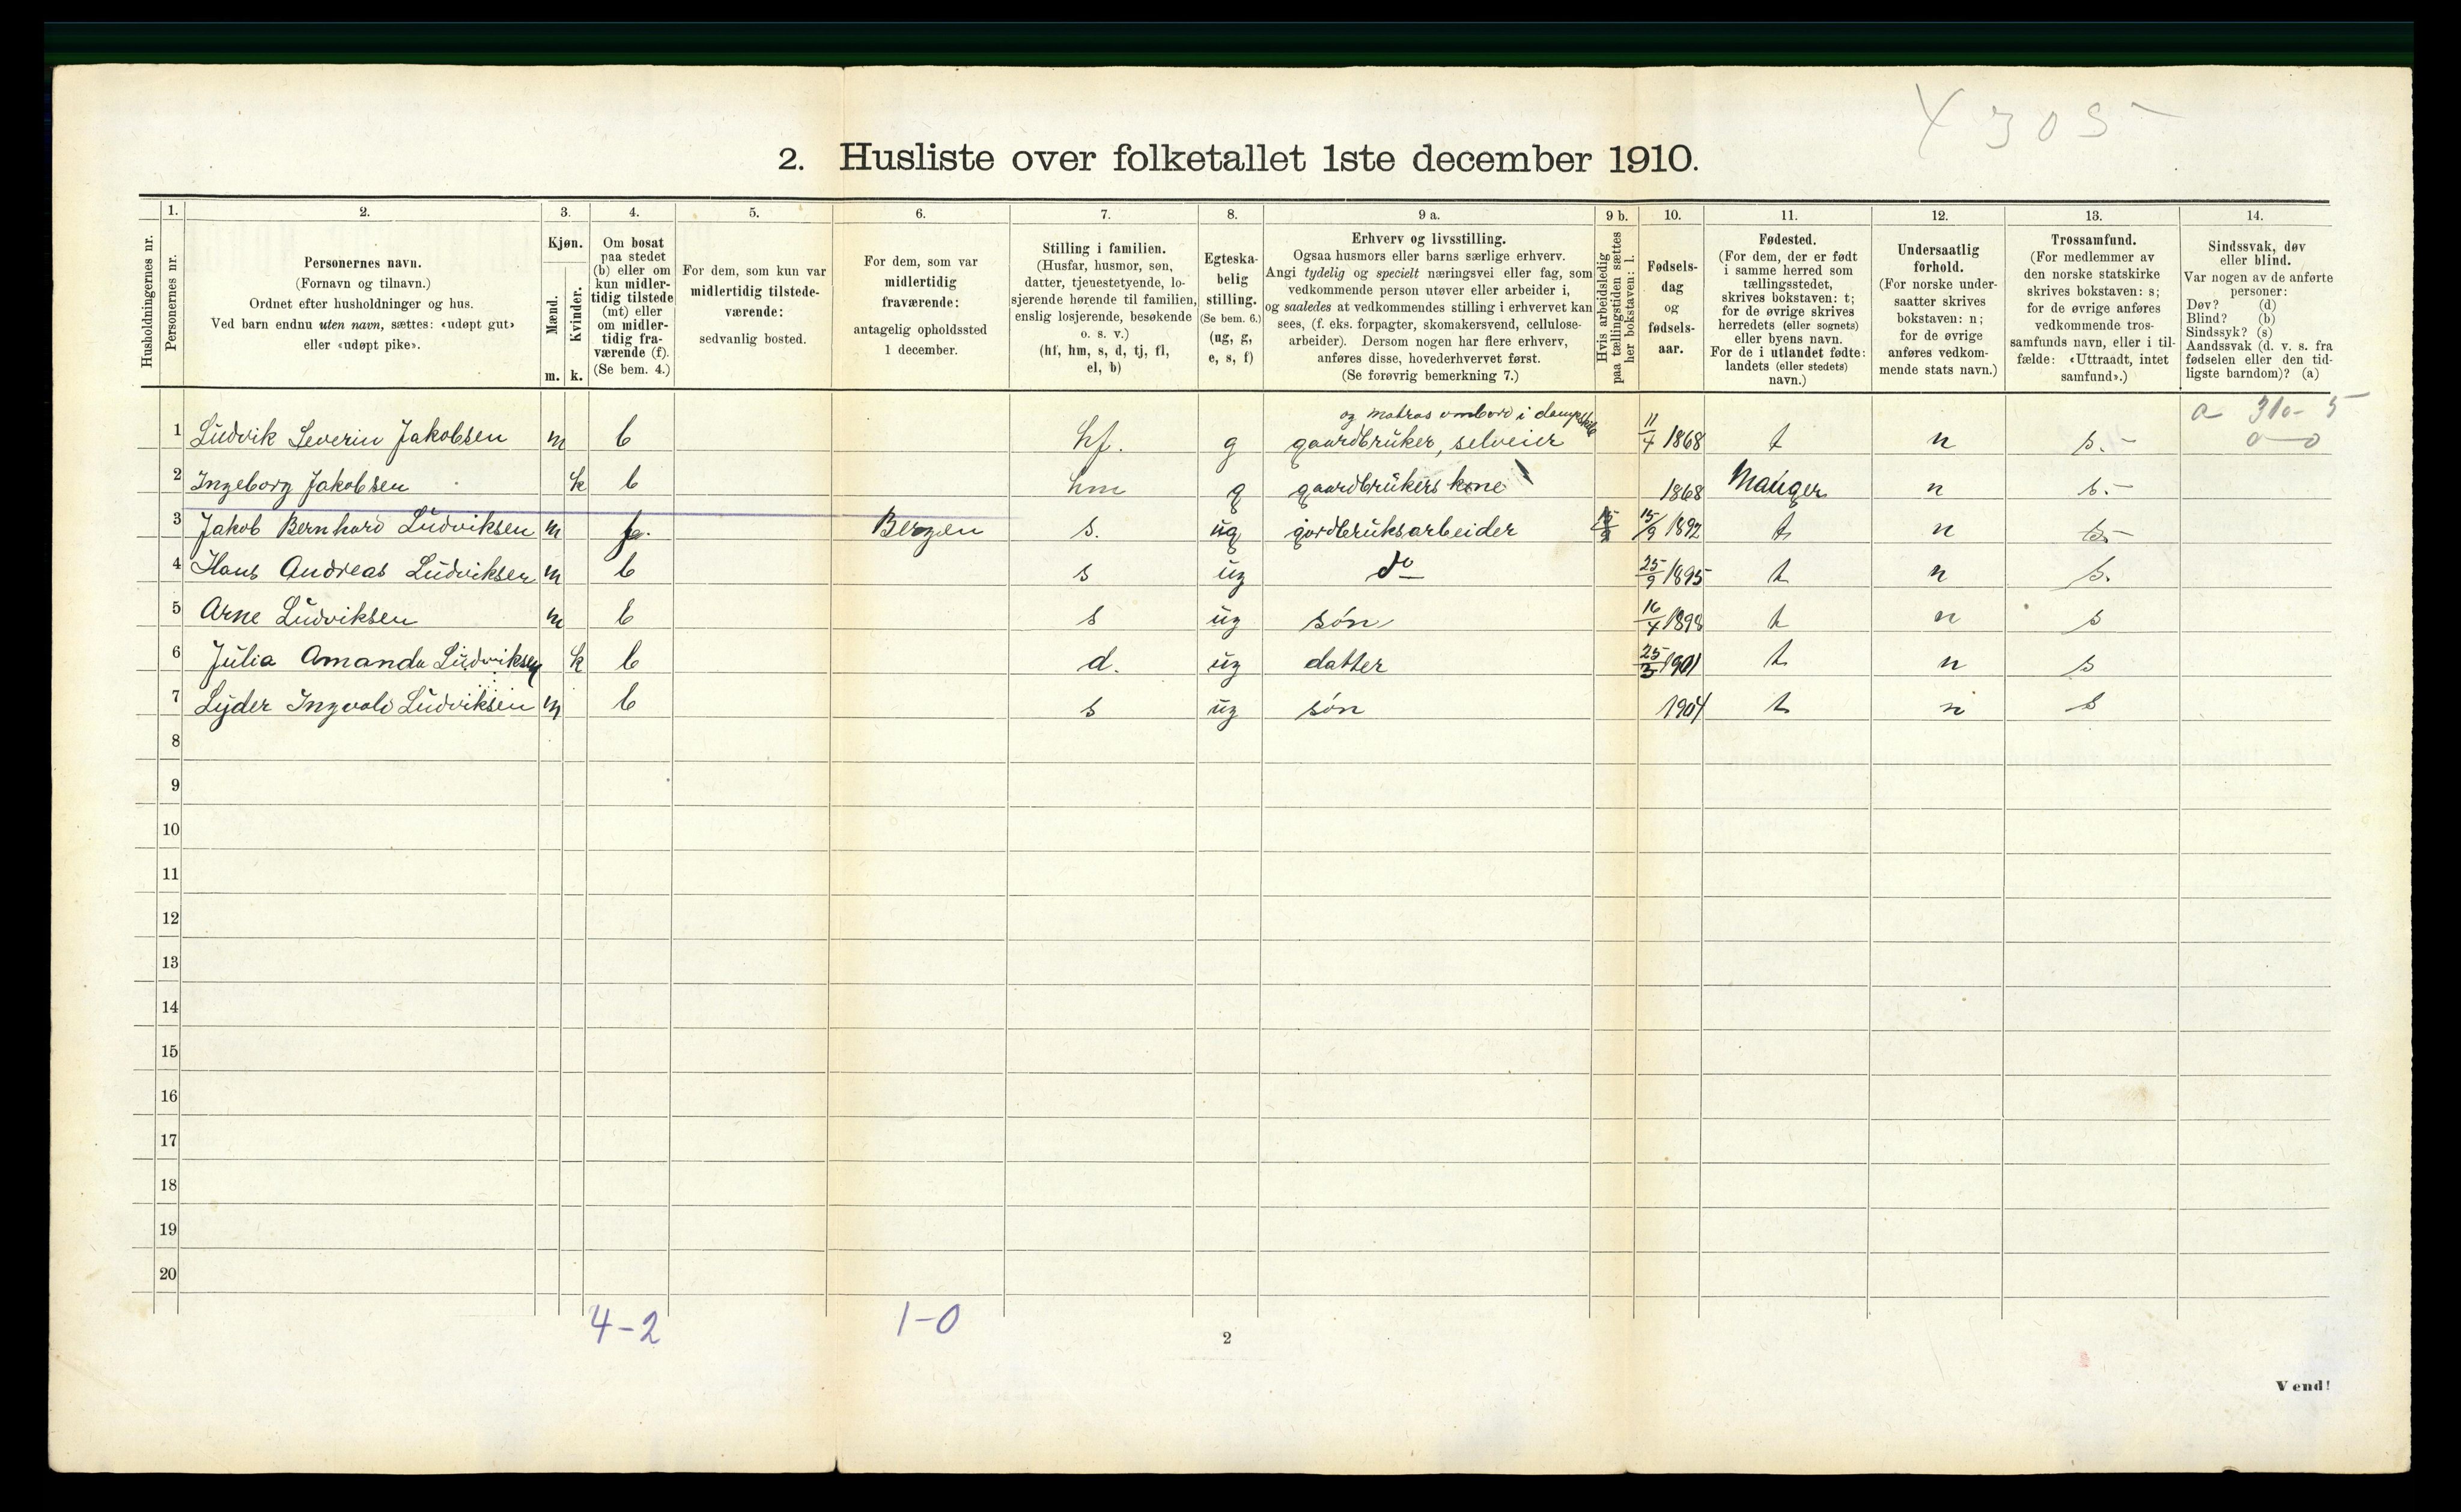 4 305-
2. Husliste over folketallet 1ste december 1910.
1. 2. 3. 4. 5. 6. 7. 8. 9 a. 9 b. 10. 11. 12. 13. 14.
Husholdningernes nr.
Personernes nr.
Personernes navn.
(Fornavn og tilnavn.)
Ordnet efter husholdninger og hus.
Ved barn endnu uten navn, sættes: «udøpt gut»
eller «udøpt pike».
Kjøn.
Mænd.
Kvinder.
m. k.
Om bosat
paa stedet
(b) eller om
kun midler-
tidig tilstede
(mt) eller
om midler-
tidig fra-
værende (f).
(Se bem. 4.)
For dem, som kun var
midlertidig tilstede-
værende:
sedvanlig bosted.
For dem, som var
midlertidig
fraværende:
antagelig opholdssted
1 december.
Stilling i familien.
(Husfar, husmor, søn,
datter, tjenestetyende, lo-
sjerende hørende til familien,
enslig losjerende, besøkende
o. s. v.)
(hf, hm, s, d, tj, fl,
el, b)
Egteska-
belig
stilling.
(Se bem. 6.)
(ug, g,
e, s, f)
Erhverv og livsstilling.
Ogsaa husmors eller barns særlige erhverv.
Angi tydelig og specielt næringsvei eller fag, som
vedkommende person utøver eller arbeider i,
og saaledes at vedkommendes stilling i erhvervet kan
sees, (f. eks. forpagter, skomakersvend, cellulose-
arbeider). Dersom nogen har flere erhverv,
anføres disse, hovederhvervet først.
(Se forøvrig bemerkning 7.)
Hvis arbeidsledig
paa tællingstiden sættes
her bokstaven: l.
Fødsels-
dag
og
fødsels-
aar.
Fødested.
(For dem, der er født
i samme herred som
tællingsstedet,
skrives bokstaven: t;
for de øvrige skrives
herredets (eller sognets)
eller byens navn.
For de i utlandet fødte:
landets (eller stedets)
navn.)
Undersaatlig
forhold.
(For norske under-
saatter skrives
bokstaven: n;
for de øvrige
anføres vedkom-
mende stats navn.)
Trossamfund.
(For medlemmer av
den norske statskirke
skrives bokstaven: s;
for de øvrige anføres
vedkommende tros-
samfunds navn, eller i til-
fælde: «Uttraadt, intet
samfund».)
Sindssvak, døv
eller blind.
Var nogen av de anførte
personer:
Døv? (d)
Blind? (b)
Sindssyk? (s)
Aandssvak (d. v. s. fra
fødselen eller den tid-
ligste barndom)? (a)
og matros ombord i dampskib
1 Ludvik Severin Jakobsen m b hf. g gaardbruker, selveier 11/4 1868 t n s.-
2 Ingeborg Jakobsen k b hm g gaardbrukers kone 1868 Manger n s.-
3 Jakob Bernhard Ludviksen m f. Bergen s. ug gardbruksarbeider 15/9 1892 t n s-
4 Hans Andreas Ludviksen m b s ug do 25/9 1895 t n s.
5 Arne Ludviksen m b s ug søn 16/4 1898 t n s
6 Julia Amanda Ludviksen k b d. ug datter 25/3 1901 t n s
7 Lyder Ingvald Ludviksen m b s ug søn 1904 t n s
8
9
10
11
12
13
14
15
16
17
18
19
20
4-2 1-0
2
Vend!